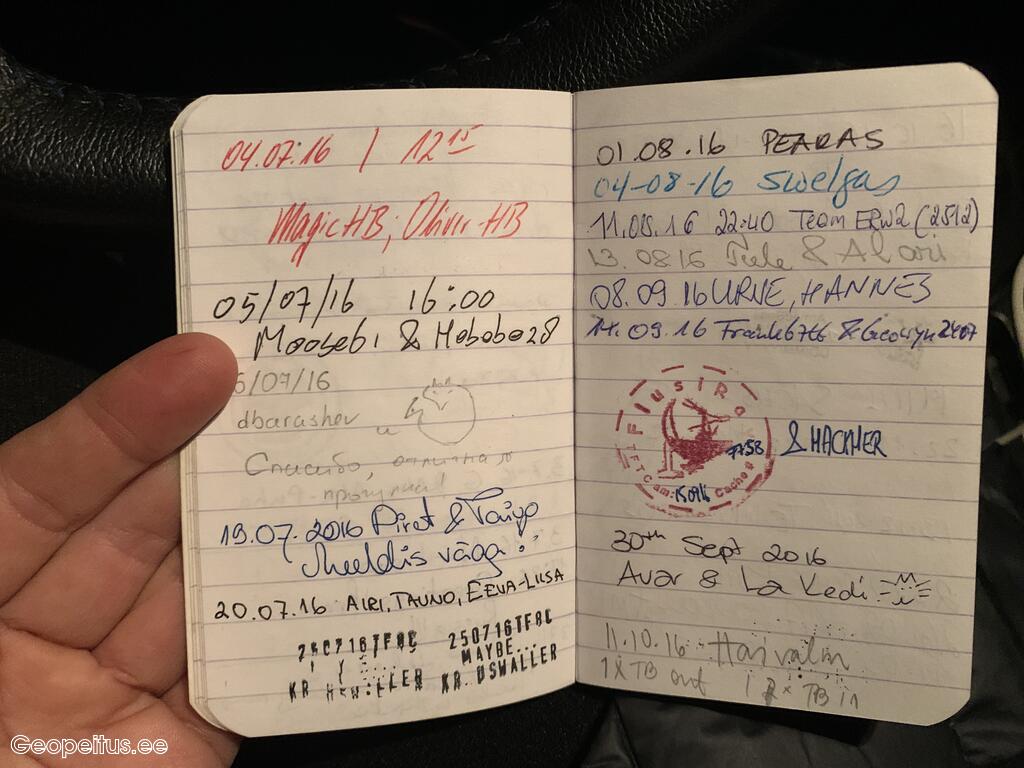 04.07.16 / 12 15
MagicHB; Oliver-HB
05/07/16 16:00
Moosebi & Hobobo28
6/07/16
dbarashev и
Спасибо, отличная
прогулка!
19.07.2016 Piret & Taigo
Meeldis väga!
20.07.16 AIRI, TAUNO, EEVA-LIISA
250716TF8C 250716TF8C
MAYBE...
KR. KR. OSWALLER
01.08.16 PEARAS
04-08-16 swelgas
11.08.16 22:40 Team ERW2 (2512)
13.0816 & Alari
08.09.16 URVE, HANNES
14.09.16 Frank6766 &
FlusiRo
TFTCam: Cache #
7758
& HACHER
30th Sept 2016
Avar & La Vedi
11.10.16 Harvalin
1x TB out 1 x TB in
Geopeitus.ee